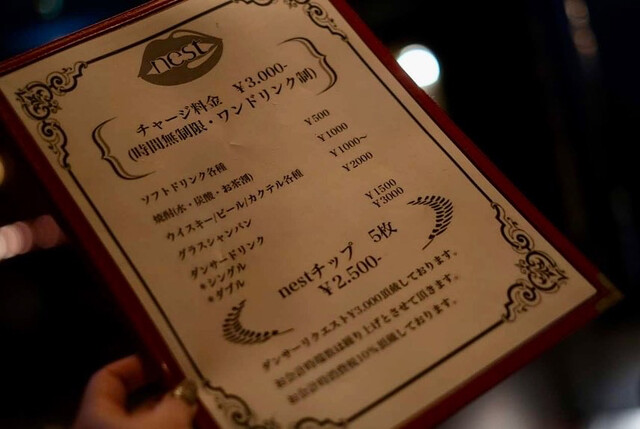 nest
チャージ料金 ￥3.000-
(時間無制限・ワンドリンク制)
ソフトドリンク各種 ¥500
焼酎(水・炭酸・お茶割) ¥1000
ウイスキー/ビール/カクテル各種 ¥1000～
グラスシャンパン ¥2000
ダンサードリンク
*シングル ¥1500
*ダブル ¥3000
nestチップ 5枚
￥2.500-
ダンサーリクエスト¥3.000頂戴しております。
お会計時端数は繰り上げとさせて頂きます。
お会計時消費税10%頂戴しております。